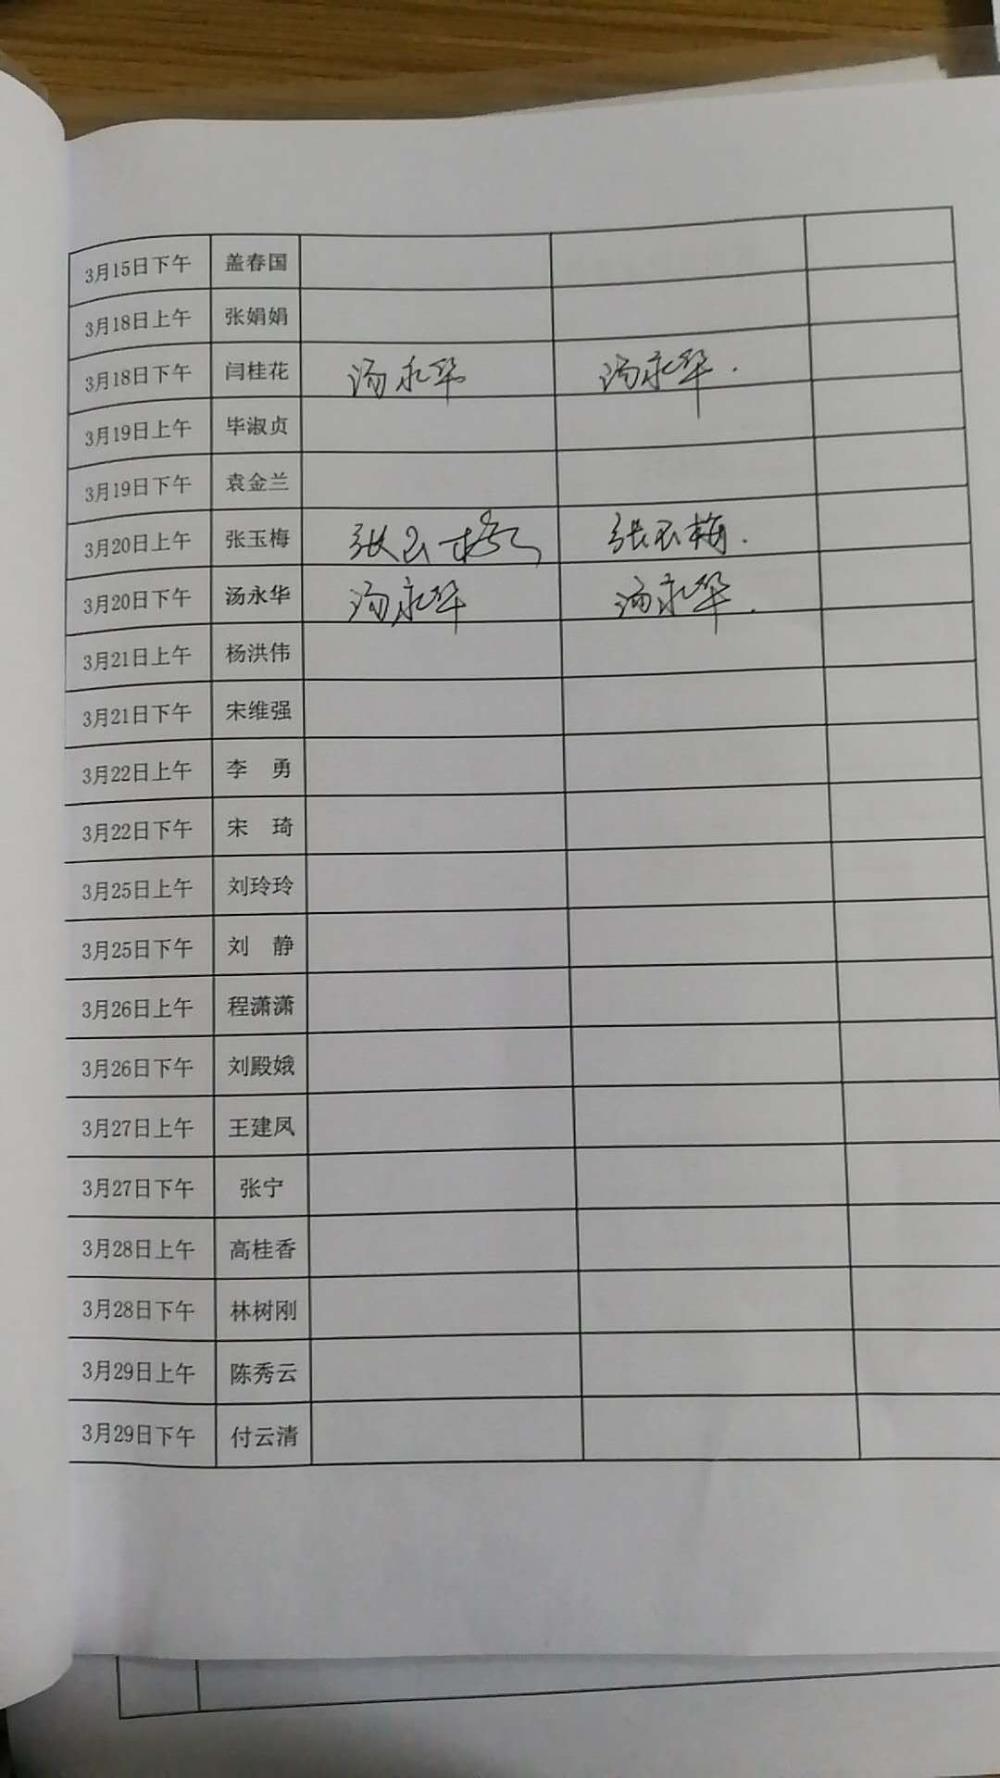 3月15日下午 盖春国
3月18日上午 张娟娟
3月18日下午 闫桂花 汤永华 汤永华.
3月19日上午 毕淑贞
3月19日下午 袁金兰
3月20日上午 张玉梅 张玉梅 张玉梅.
3月20日下午 汤永华 汤永华 汤永华.
3月21日上午 杨洪伟
3月21日下午 宋维强
3月22日上午 李 勇
3月22日下午 宋 琦
3月25日上午 刘玲玲
3月25日下午 刘 静
3月26日上午 程潇潇
3月26日下午 刘殿娥
3月27日上午 王建凤
3月27日下午 张宁
3月28日上午 高桂香
3月28日下午 林树刚
3月29日上午 陈秀云
3月29日下午 付云清